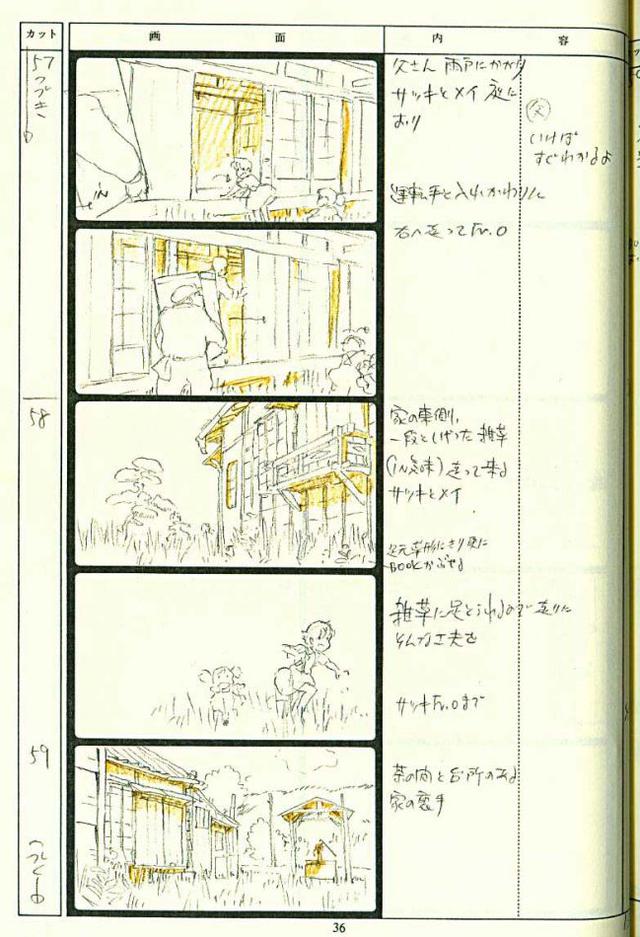 カット 画面 内容
57
つづき
父さん 雨戸にかかり
サツキとメイ 庭に
おり
父
いけば
すぐわかるよ
運転手と入れかわりに
右へ走ってFr.O
58
家の東側。
一段としげった雑草
(IN気味) 走って来る
サツキとメイ
BOOKかぶせる
雑草に足とられるので走りに
そんな工夫を
サツキFr.Oまで
59
茶の間と台所のある
家の裏手
つづく
36